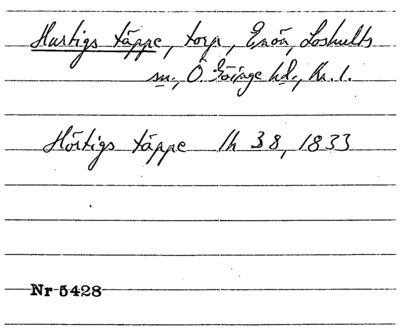 Hurtigs täppe, torp, Enön, Loshults
sn., Ö. Göinge hd., Kr. l.
Hörtigs täppe lh 38, 1833
Nr 5428